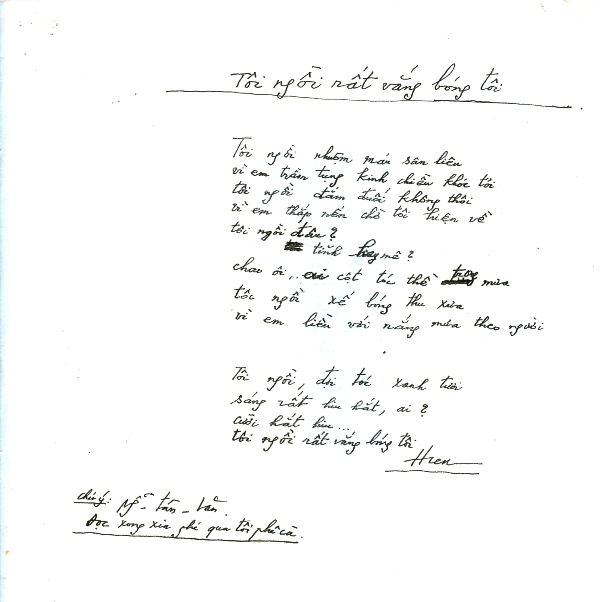 Tôi ngồi rất vắng bóng tôi
Tôi ngồi nhuộm máu sân liêu
vì em trầm tụng kinh chiều khóc tôi
tôi ngồi đắm đuối không thôi
vì em thắp nến chờ tôi hiện về
tôi ngồi đâu?
tỉnh hay mê?
chao ôi, .. ai cột tóc thề trong mưa
tóc ngồi xế bóng thu xưa
vì em liều với nắng mưa theo người
Tôi ngồi, đợi tóc xanh tươi
sáng rất hiu hắt, ai?
cười hắt hiu...
tôi ngồi rất vắng bóng tôi
Hren
chú ý: Ng̃ - Tấn - Văn.
Đọc xong xin ghé qua tôi phê cà.